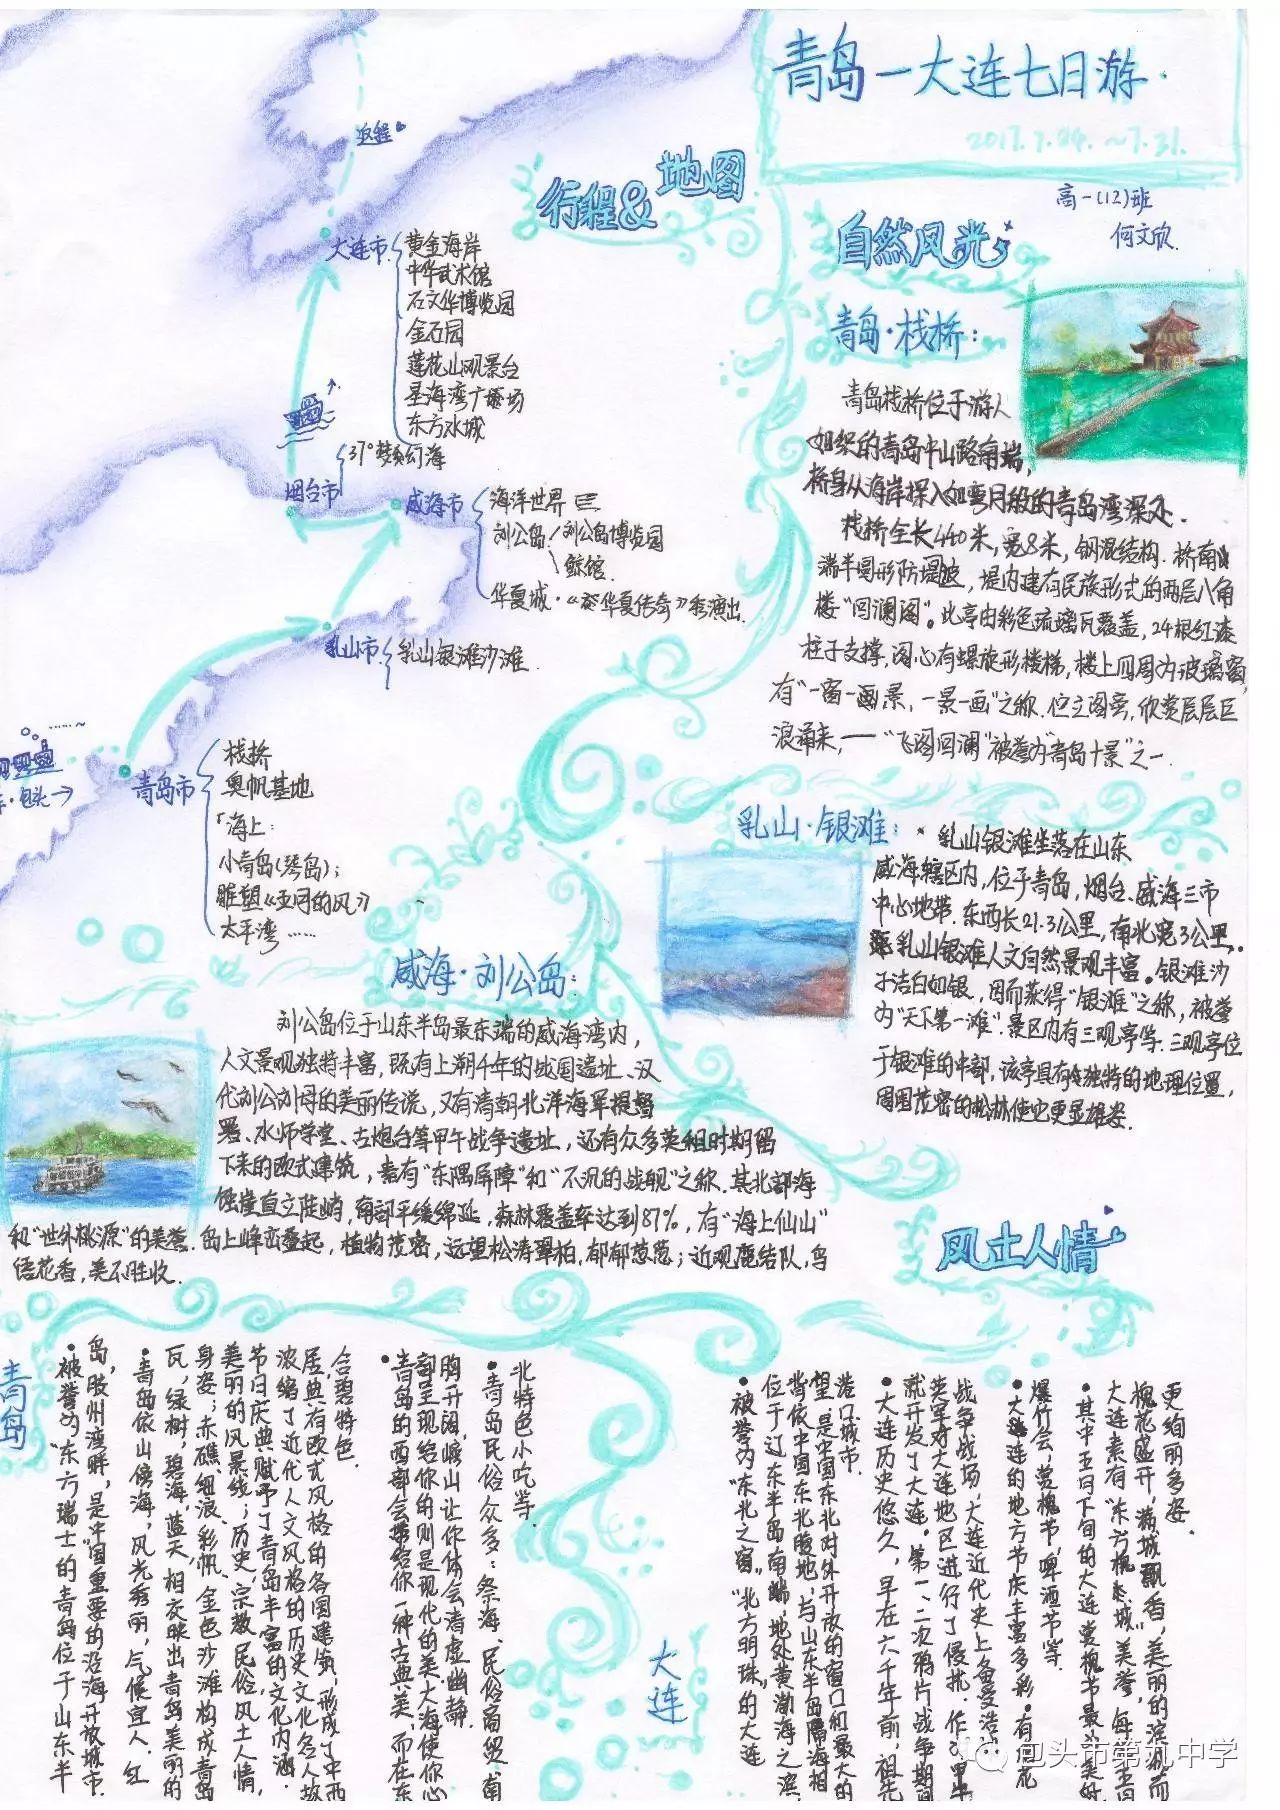 青岛—大连七日游
2017.7.24.~7.31.
高一(12)班
何文欣.
行程&地图
返程
大连市
黄金海岸
中华武术馆
石文华博览园
金石园
莲花山观景台
星海湾广场
东方水城
烟台市
37°梦幻海
威海市
海洋世界
刘公岛
刘公岛博览园
鲸馆.
华夏城·《华夏传奇》演出.
乳山市
乳山银滩沙滩.
青岛市
包头→
栈桥
奥帆基地
「海上:
小青岛(琴岛);
雕塑《五月的风》
太平湾……
自然风光
青岛·栈桥:
青岛栈桥位于游人
如织的青岛中山路南端,
桥身从海岸探入如弯月般的青岛湾深处.
栈桥全长440米,宽8米,钢混结构.桥南
端半圆形防堤波,堤内建有民族形式的两层八角
楼“回澜阁”。此亭由彩色琉璃瓦覆盖,24根红漆
柱子支撑.阁心有螺旋形楼梯,楼上四周为玻璃窗,
有“一窗一画景,一景一画”之称.伫立阁旁,欣赏层层巨
浪涌来,—“飞阁回澜”被誉为“青岛十景”之一.
乳山·银滩:
乳山银滩坐落在山东
威海辖区内,位于青岛,烟台、威海三市
中心地带.东西长21.3公里,南北宽3公里.
乳山银滩人文自然景观丰富。银滩沙
子洁白如银,因而获得“银滩”之称,被誉
为“天下第一滩”.景区内有三观亭等.三观亭位
于银滩的中部,该亭具有独特的地理位置,
周围茂密的松林使它更显雄姿.
威海·刘公岛:
刘公岛位于山东半岛最东端的威海湾内,
人文景观独特丰富,既有上溯千年的战国遗址、汉
代刘公刘母的美丽传说,又有清朝北洋海军提督
署、水师学堂、古炮台等甲午战争遗址,还有众多英租时期留
下来的欧式建筑,素有“东隅屏障”和“不沉的战舰”之称.其北部海
蚀崖直立陡峭,南部平缓绵延,森林覆盖率达到87%,有“海上仙山”
和“世外桃源”的美誉.岛上峰峦叠起,植物茂密,远望松涛翠柏,郁郁葱葱;近观鹿结队,鸟
语花香,美不胜收.
风土人情
大连
•被誉为“东北之窗”,“北方明珠”的大连
位于辽东半岛南端,地处黄渤海之滨,
背依中国东北腹地,与山东半岛隔海相
望.是中国东北对外开放的窗口和最大的
港口城市.
•大连历史悠久,早在六千年前,祖先
就开发了大连.第一、二次鸦片战争期间
英军对大连地区进行了侵扰.作为甲午
战争战场,大连近代史上备受浩
•大连的地方节庆丰富多彩.有烟花
爆竹会,赏槐节,啤酒节等.
•其中五月下旬的大连赏槐节最为美好
大连素有“东方槐城”美誉,每当五月
槐花盛开,满城飘香,美丽的滨城而
更绚丽多姿.
青岛
•被誉为“东方瑞士的青岛位于山东半
岛,胶州湾畔,是中国重要的沿海开放城市.
•青岛依山傍海,风光秀丽,气候宜人.红
瓦,绿树,碧海,蓝天,相交映出青岛美丽的
身姿;赤礁,细浪,彩帆,金色沙滩构成青岛
美丽的风景线;历史,宗教,民俗,风土人情,
节日庆典赋予了青岛丰富的文化内涵.
浓缩了近代人文风格的历史文化名人故
居,典有欧式风格的各国建筑,形成了中西
合碧特色.
•青岛的西部会带给你一种古典美,而在东
部呈现给你的则是现代的美.大海使你心
胸开阔,崂山让你体会清虚幽静.
•青岛民俗众多:祭海、民俗商贸、南
北特色小吃等.
包头市第九中学